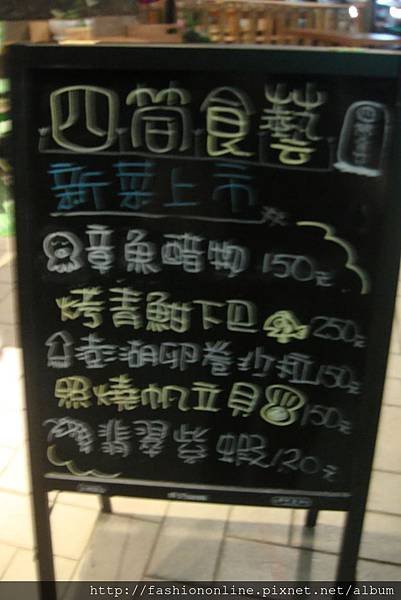 四筒食藝
新菜上市
章魚醋物 150元
烤青魽下巴 250元
澎湖卵卷沙拉 150元
照燒帆立貝 150元
翡翠紫蝦 120元
http://fashiononline.pixnet.net/album